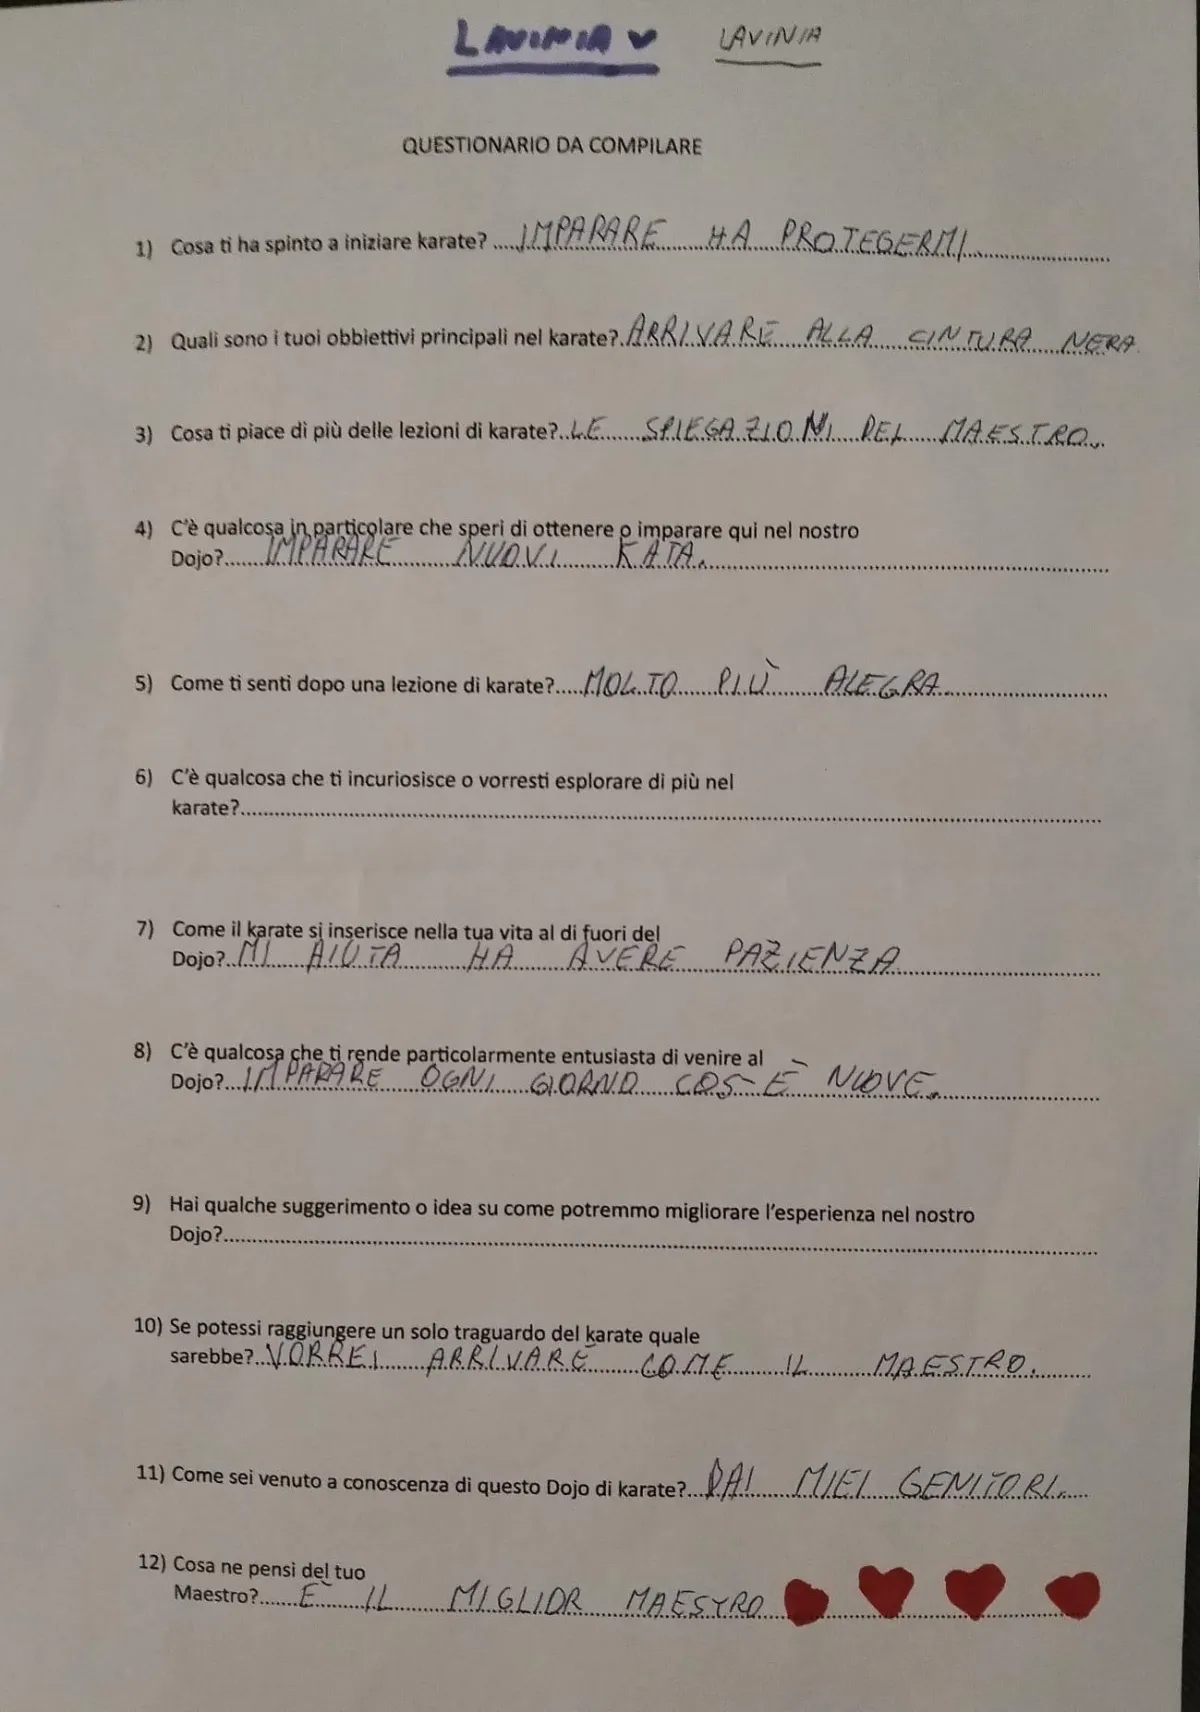 LAVINIA LAVINIA
QUESTIONARIO DA COMPILARE
1) Cosa ti ha spinto a iniziare karate? IMPARARE HA PROTEGERMI
2) Quali sono i tuoi obbiettivi principali nel karate? ARRIVARE ALLA CINTURA NERA
3) Cosa ti piace di più delle lezioni di karate? LE SPIEGAZIONI DEL MAESTRO.
4) C'è qualcosa in particolare che speri di ottenere o imparare qui nel nostro
Dojo? IMPARARE NUOVI KATA.
5) Come ti senti dopo una lezione di karate? MOLTO PIÙ ALEGRA
6) C'è qualcosa che ti incuriosisce o vorresti esplorare di più nel
karate?
7) Come il karate si inserisce nella tua vita al di fuori del
Dojo? MI AIUTA HA AVERE PAZIENZA
8) C'è qualcosa che ti rende particolarmente entusiasta di venire al
Dojo? IMPARARE OGNI GIORNO COSE NUOVE.
9) Hai qualche suggerimento o idea su come potremmo migliorare l'esperienza nel nostro
Dojo?
10) Se potessi raggiungere un solo traguardo del karate quale
sarebbe? VORREI ARRIVARE COME IL MAESTRO.
11) Come sei venuto a conoscenza di questo Dojo di karate? DAI MIEI GENITORI.
12) Cosa ne pensi del tuo
Maestro? È IL MIGLIOR MAESTRO